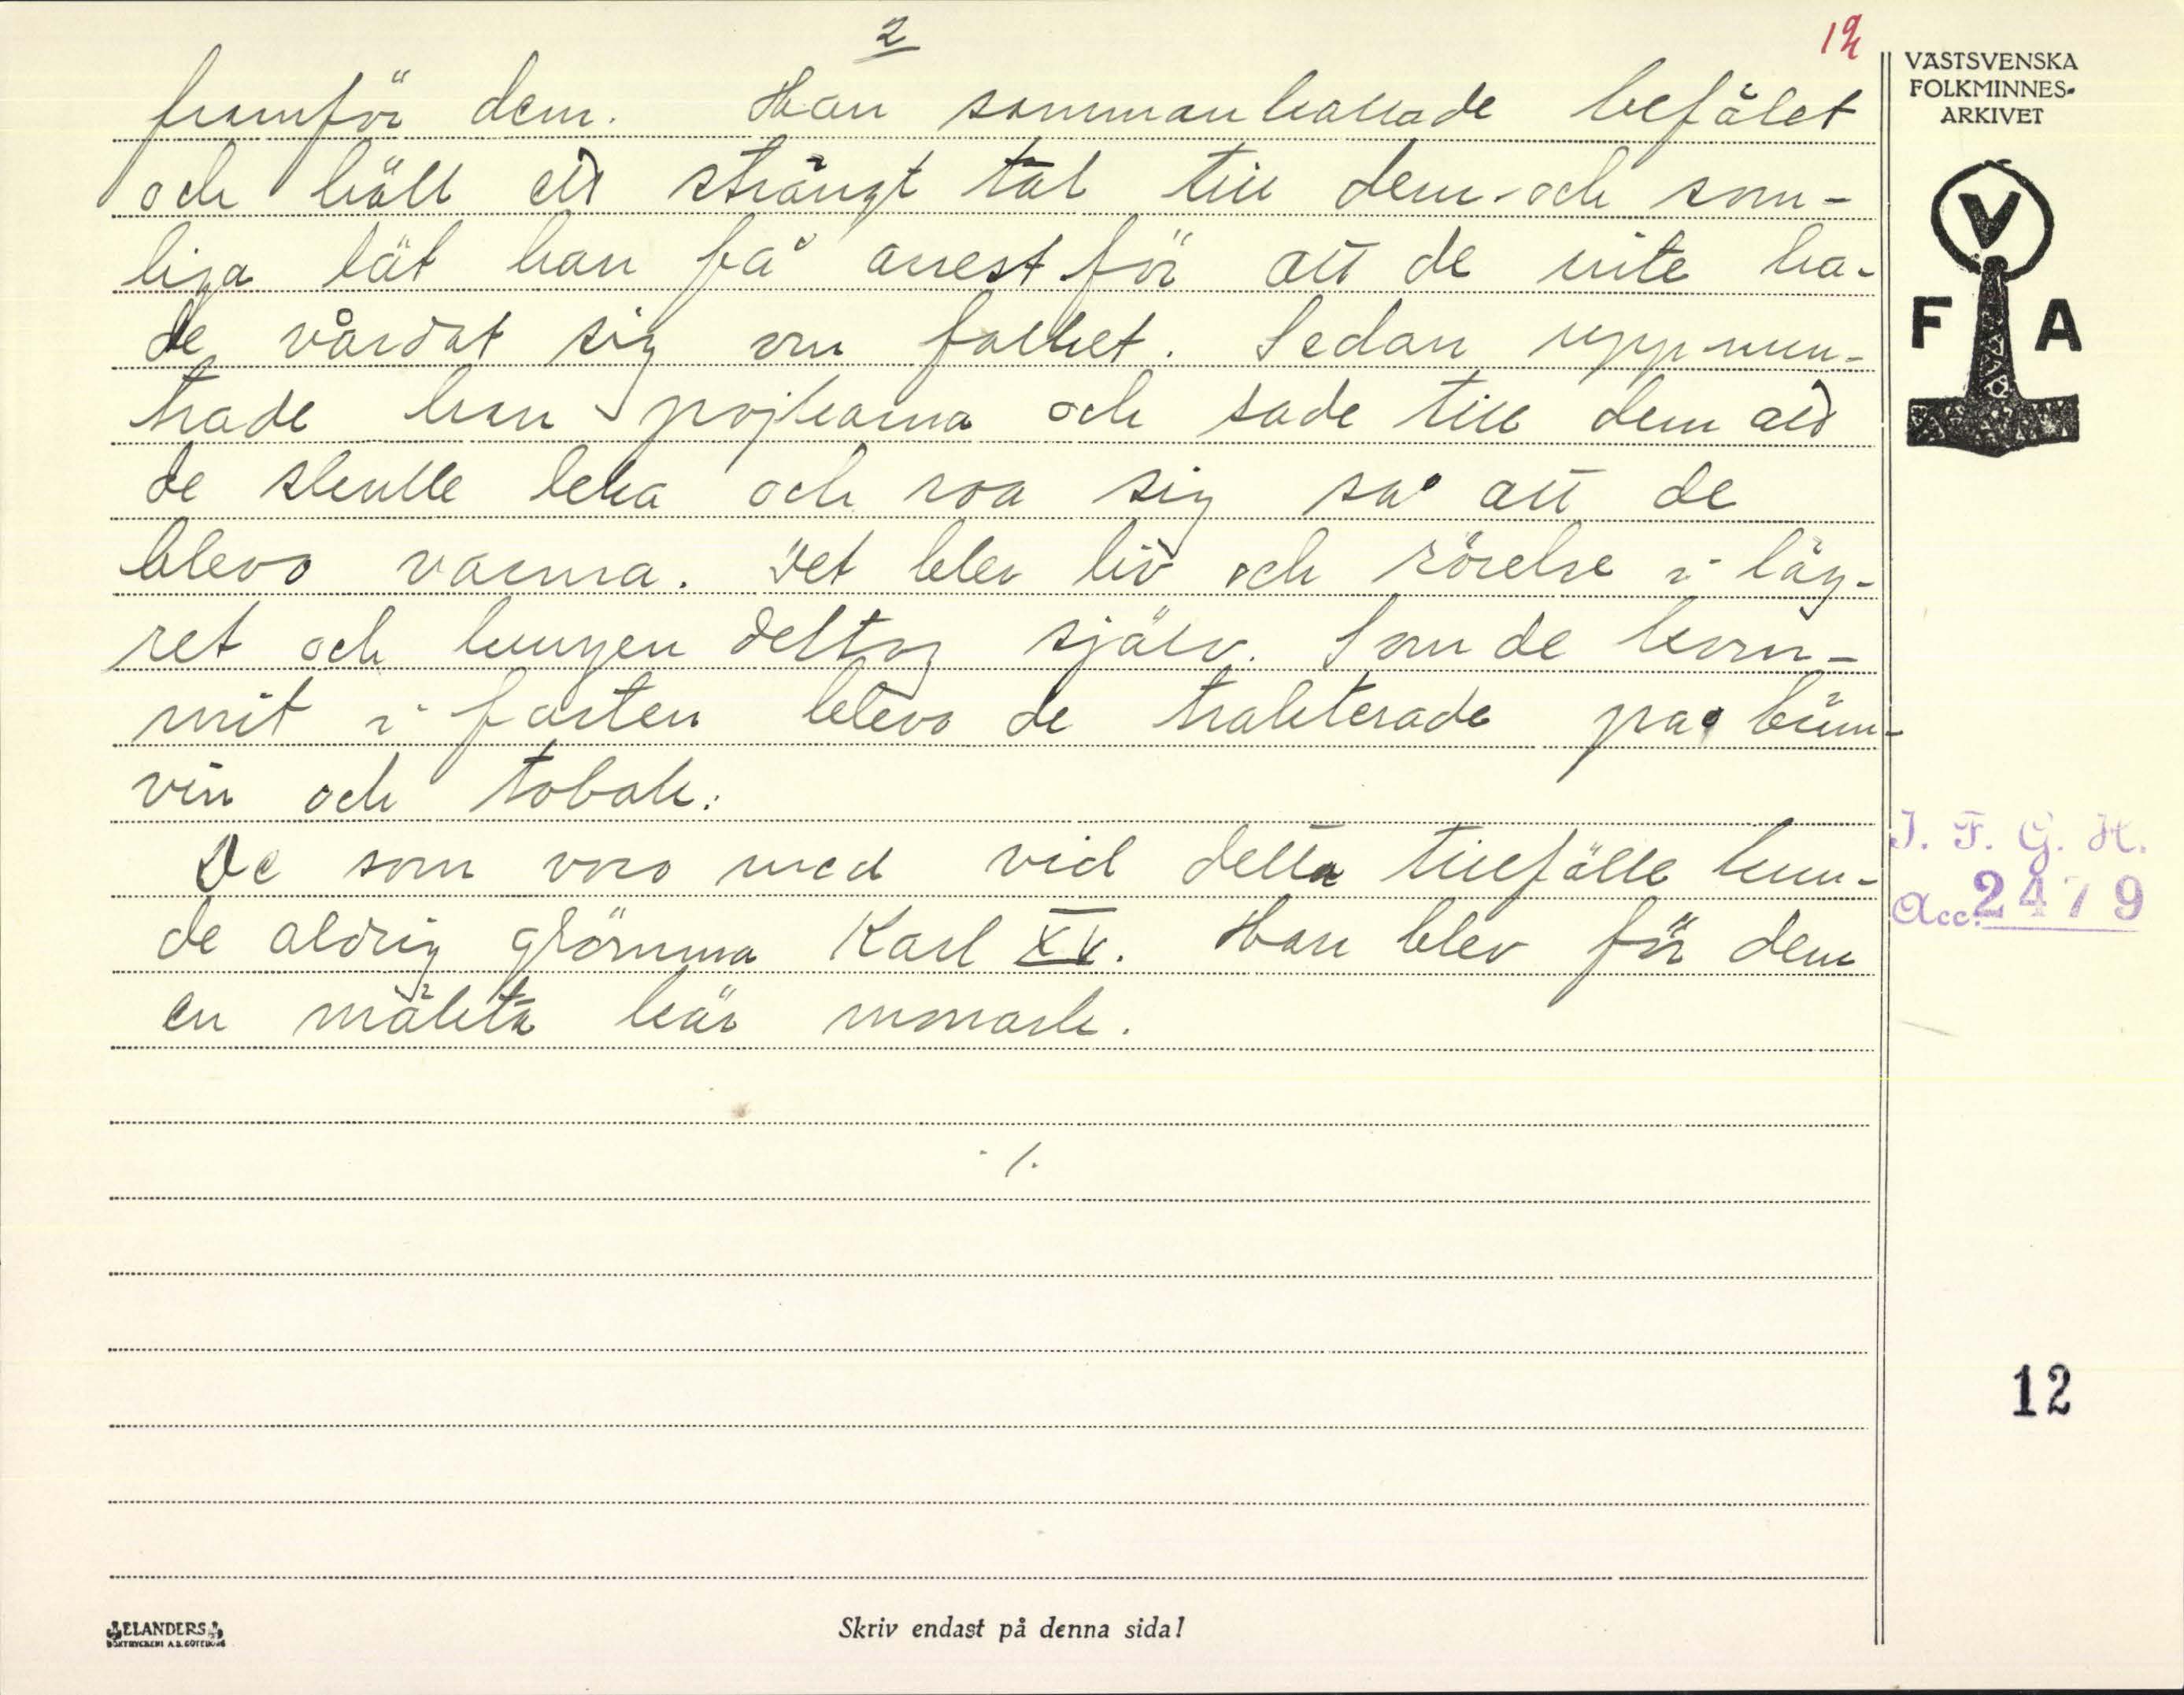 2
12
framför dem. Han sammankallade befälet
och höll ett strängt tal till dem och som-
liga lät han få arrest för att de inte ha-
de vårdat sig om folket. Sedan uppmun-
trade han pojkarna och sade till dem att
de skulle leka och roa sig så att de
blevo varma. Det blev liv och rörelse i läg-
ret och kungen deltog själv. Som de kom-
mit i farten blevo de trakterade på bränn-
vin och tobak.
De som voro med vid detta tillfälle kun-
de aldrig glömma Karl XV. Han blev för dem
en mäkta kär monark.
./.
VÄSTSVENSKA
FOLKMINNES-
ARKIVET
V
F A
I. F. G. H.
Acc. 2479
12
ELANDERS
BOKTRYCKERI A.B. GÖTEBORG
Skriv endast på denna sida!